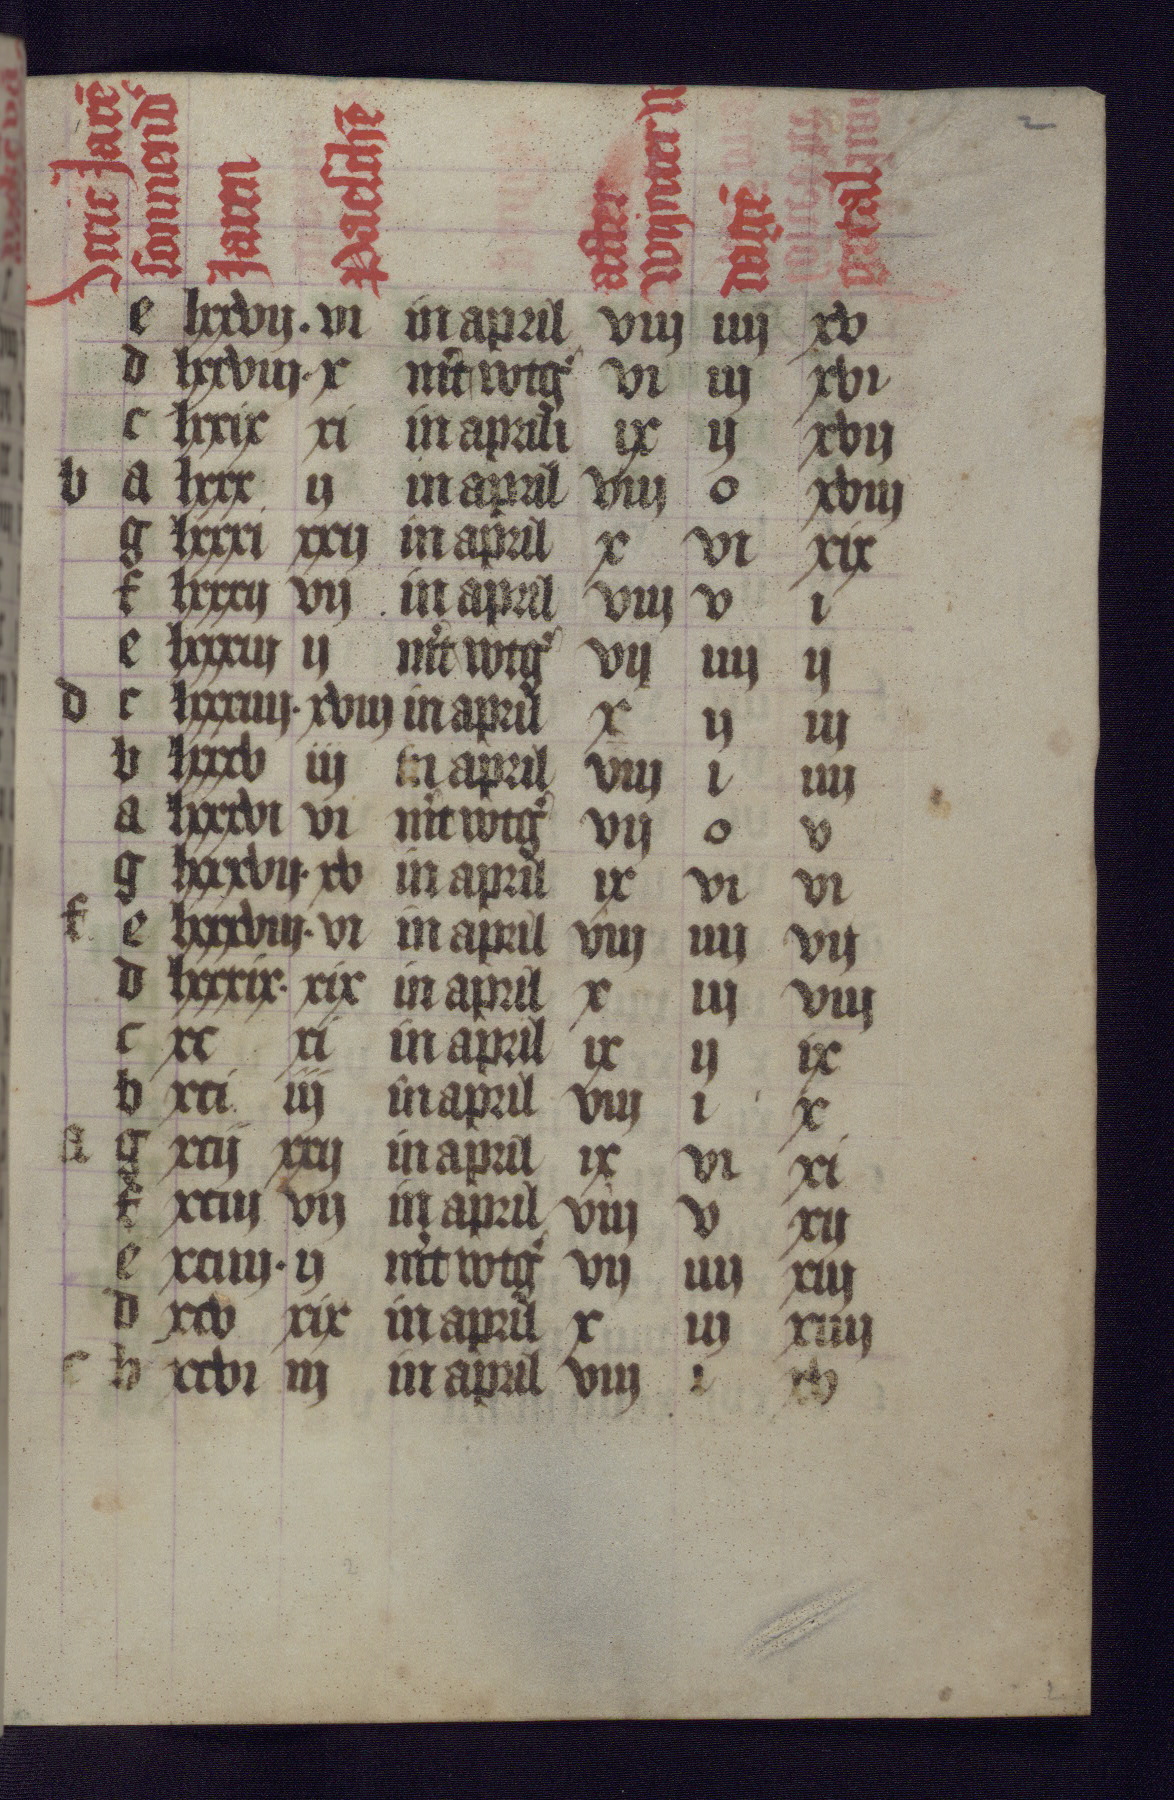 2
Jaren
Paesche
after
e lxxvij. vi in april viij iiij xv
d lxxviij. x mt wtg vi iij xvi
c lxxix xi in aprili ix ij xvij
b a lxxx ij in april viij o xviij
g lxxxi xxij in april x vi xix
f lxxxij vij in april viij v i
e lxxxiij ij mt wtg vij iiij ij
d c lxxxiiij. xviij in april x ij iij
b lxxxv iij in april viij i iiij
a lxxxvi vi mt wtg vij o v
g lxxxvij. xv in april ix vi vi
f e lxxxviij. vi in april viij iiij vij
d lxxxix. xix in april x iij viij
c xc xi in april ix ij ix
b xci iij in april viij i x
a g xcij xxij in april ix vi xi
f xciij vij in april viij v xij
e xciiij. ij mt wtg vij iiij xiij
d xcv xix in april x iij xiiij
c b xcvi iij in april viij i xv